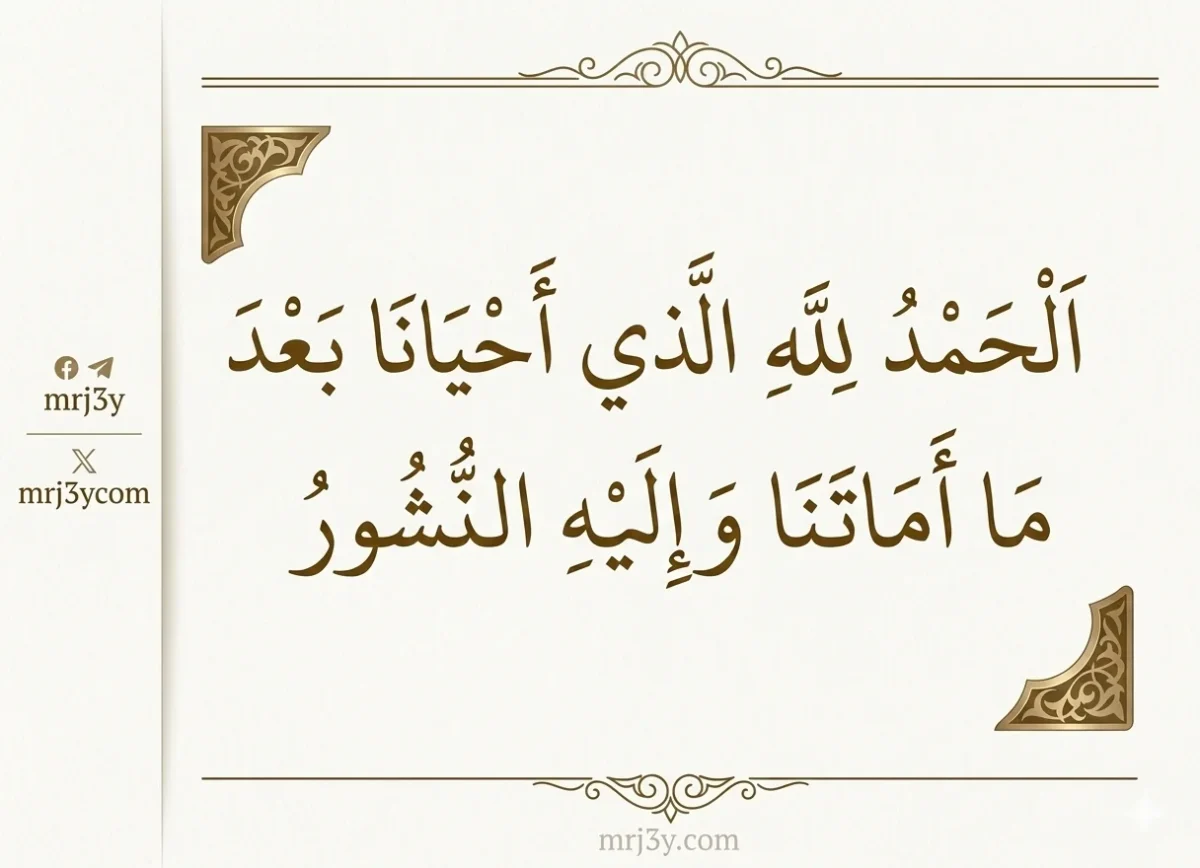 اَلْحَمْدُ لِلَّهِ الَّذي أَحْيَانَا بَعْدَ
مَا أَمَاتَنَا وَإِلَيْهِ النُّشُورُ
mrj3y
mrj3ycom
mrj3y.com